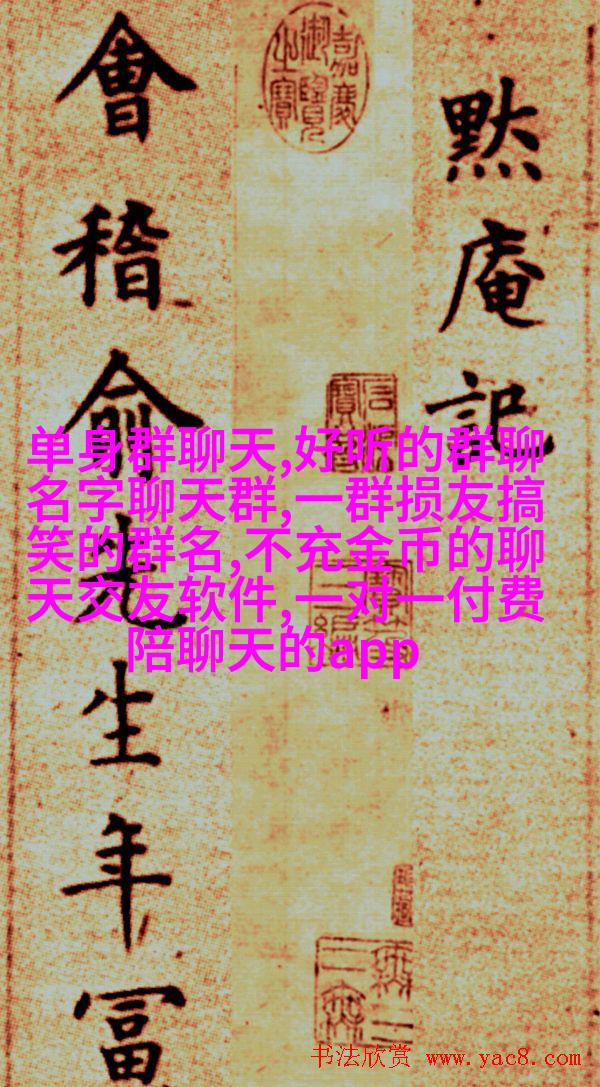 黙庵記
嘉慶
御覽
之寶
會稽俞先生年冨
单身群聊天,好听的群聊
名字聊天群,一群损友搞
笑的群名,不充金币的聊
天交友软件,一对一付费
陪聊天的app
书法欣赏 www.yac8.com